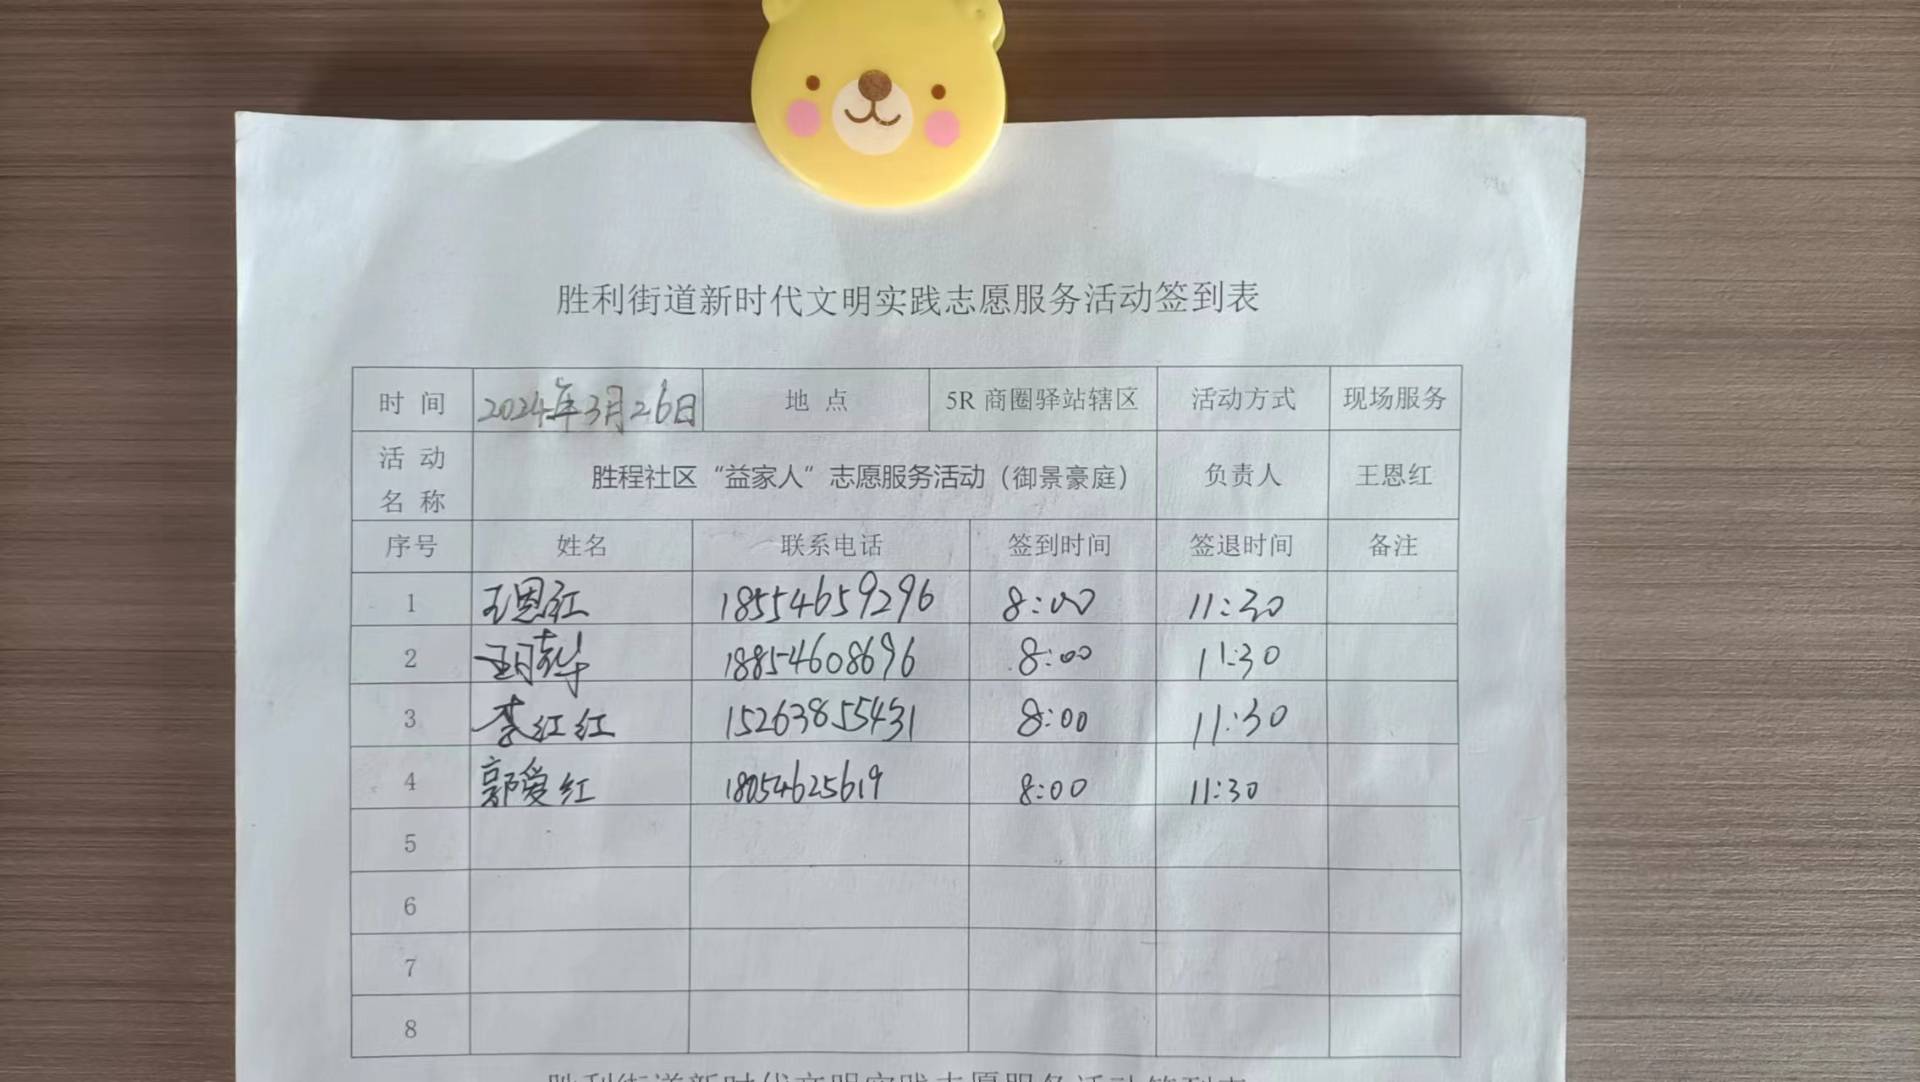 胜利街道新时代文明实践志愿服务活动签到表
时 间 2024年3月26日 地 点 5R 商圈驿站辖区 活动方式 现场服务
活 动 名 称 胜程社区“益家人”志愿服务活动（御景豪庭） 负责人 王恩红
序号 姓名 联系电话 签到时间 签退时间 备注
1 王恩红 18554659296 8:00 11:30
2 18854608696 8:00 11:30
3 李红红 15263855431 8:00 11:30
4 郭爱红 18054625619 8:00 11:30
5
6
7
8
胜利街道新时代文明实践志愿服务活动签到表